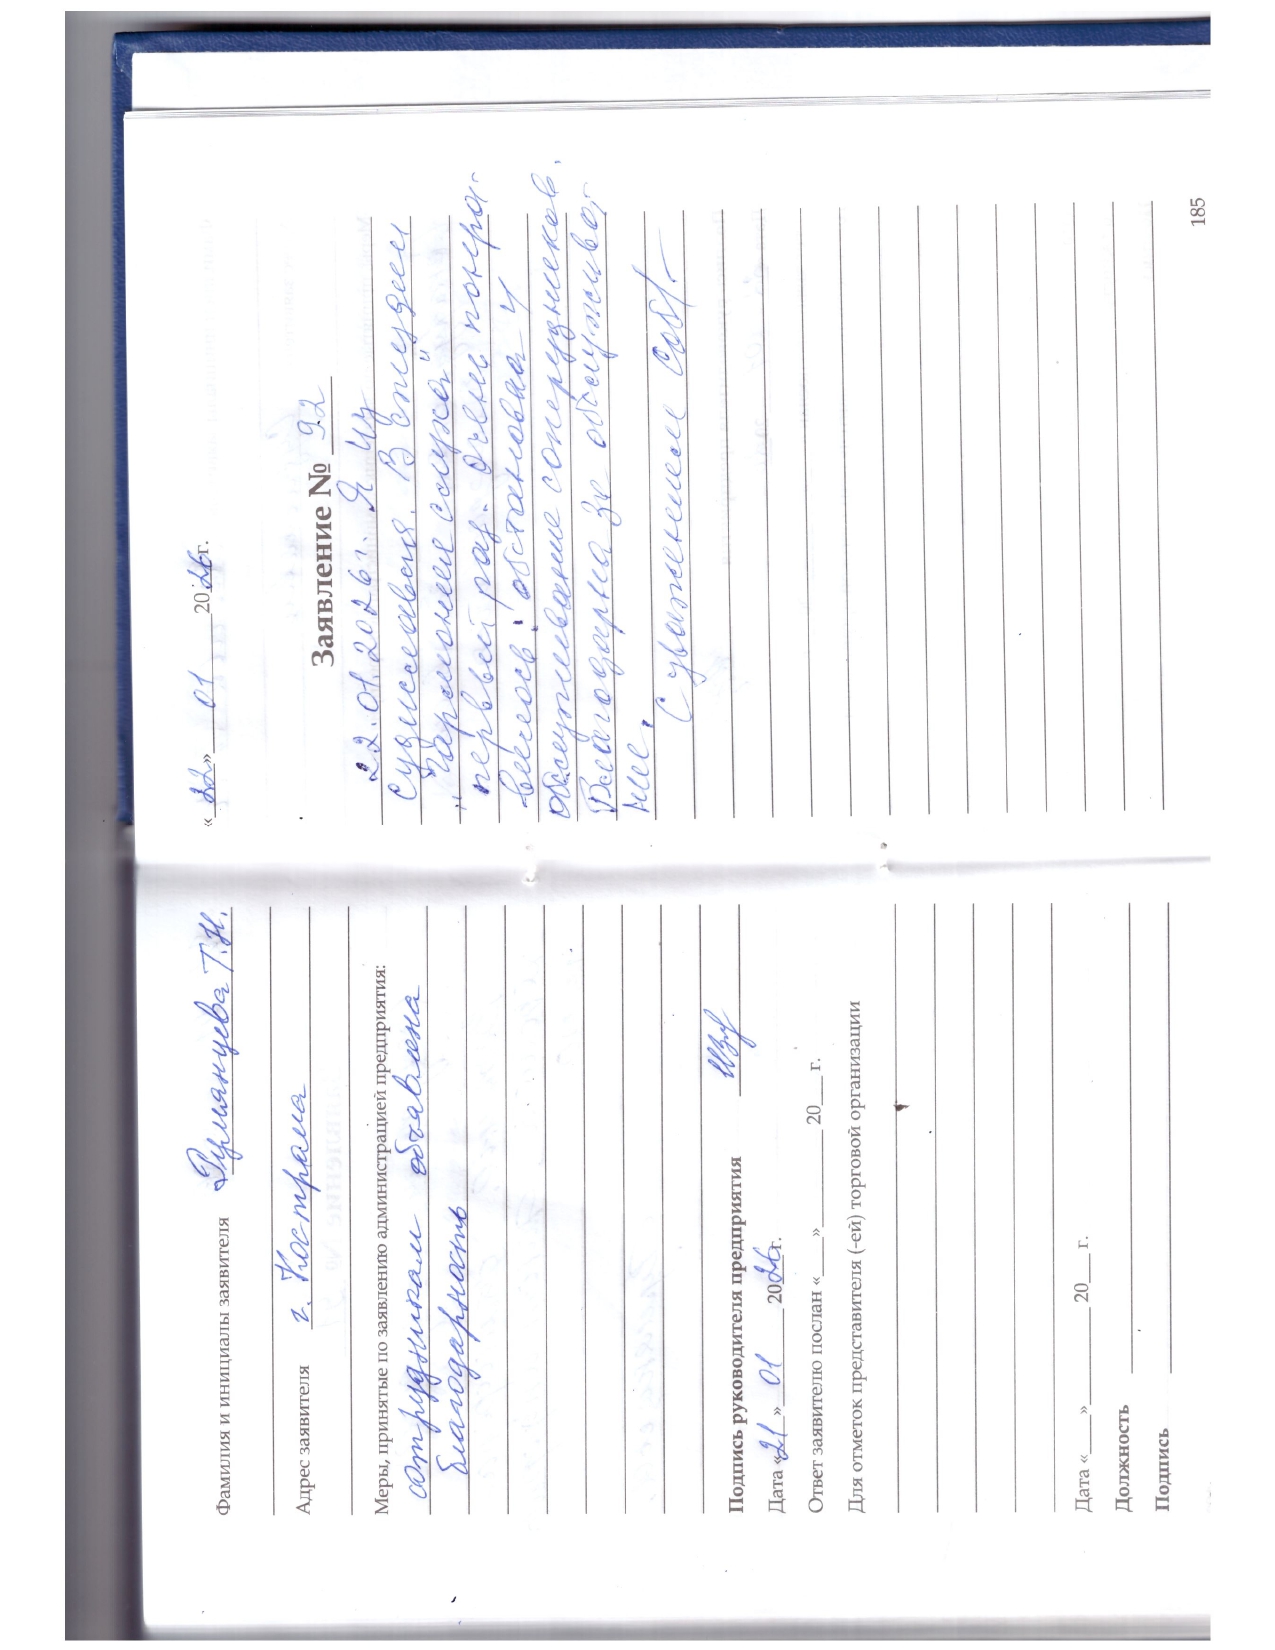 Фамилия и инициалы заявителя Румянцева Т.Н.
Адрес заявителя г. Кострома
Меры, принятые по заявлению администрацией предприятия:
сотрудникам объявлена
благодарность
Подпись руководителя предприятия
Дата «21» 01 2026г.
Ответ заявителю послан «___»________ 20___ г.
Для отметок представителя (-ей) торговой организации
Дата «___»________ 20___ г.
Должность
Подпись
«22» 01 2026г.
Заявление № 92
22.01.2026г. Я из
Судиславля. В студии
"Гармония слуха"
первый раз. Очень понра-
вилось: обстановка и
обслуживание сотрудников.
Благодарна за обслужива-
ние.
С уважением
185